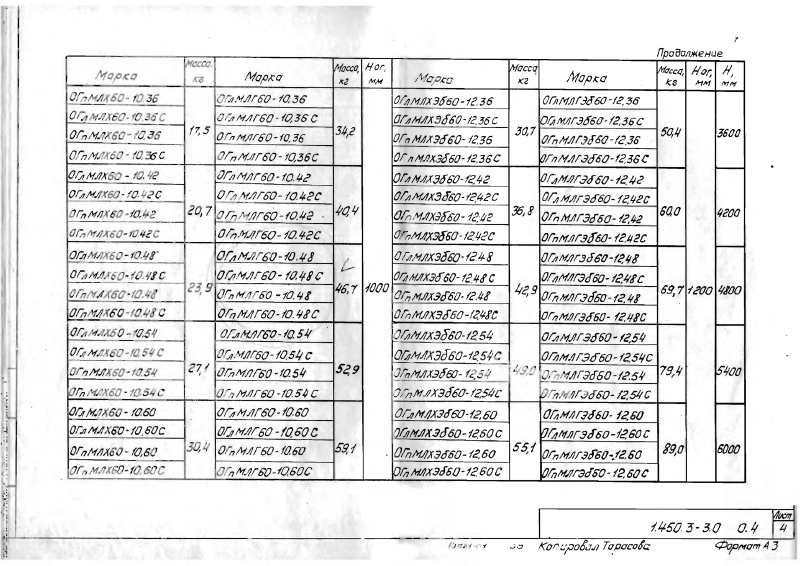 Продолжение
Марка | Масса, кг | Марка | Масса, кг | Н ог, мм | Марка | Масса кг | Марка | Масса, кг | Н ог, мм | Н, мм
ОГл МЛХ60-10.36 | 17,5 | ОГл МЛГ60-10,36 | 34,2 | 1000 | ОГл МЛХЭб60-12.36 | 30,7 | ОГл МЛГЭб60-12,36 | 50,4 | 1200 | 3600
ОГл МЛХ60-10.36 С | ОГл МЛГ60-10,36 С | ОГл МЛХЭб60-12,36 С | ОГл МЛГЭб60-12,36 С
ОГп МЛХ60-10,36 | ОГп МЛГ60-10,36 | ОГп МЛХЭб60-12.36 | ОГп МЛГЭб60-12.36
ОГп МЛХ60-10,36 С | ОГп МЛГ60-10,36 С | ОГп МЛХЭб60-12,36 С | ОГп МЛГЭб60-12,36 С
ОГл МЛХ60-10,42 | 20,7 | ОГл МЛГ60-10.42 | 40,4 | ОГл МЛХЭб60-12,42 | 36,8 | ОГл МЛГЭб60-12,42 | 60,0 | 4200
ОГл МЛХ60-10.42 С | ОГл МЛГ60-10.42С | ОГл МЛХЭб60-12,42С | ОГл МЛГЭб60-12,42С
ОГп МЛХ60-10.42 | ОГп МЛГ60-10.42 | ОГп МЛХЭб60-12,42 | ОГп МЛГЭб60-12,42
ОГп МЛХ60-10.42С | ОГп МЛГ60-10.42С | ОГп МЛХЭб60-12,42С | ОГп МЛГЭб60-12,42С
ОГл МЛХ60-10.48 | 23,9 | ОГл МЛГ60-10.48 | 46,7 | ОГл МЛХЭб60-12.48 | 42,9 | ОГл МЛГЭб60-12,48 | 69,7 | 4800
ОГл МЛХ60-10,48 С | ОГл МЛГ60-10.48 С | ОГл МЛХЭб60-12,48 С | ОГл МЛГЭб60-12,48С
ОГп МЛХ60-10,48 | ОГп МЛГ60-10.48 | ОГп МЛХЭб60-12.48 | ОГп МЛГЭб60-12.48
ОГп МЛХ60-10.48 С | ОГп МЛГ60-10.48 С | ОГп МЛХЭб60-12,48С | ОГп МЛГЭб60-12.48С
ОГл МЛХ60-10.54 | 27,1 | ОГл МЛГ60-10.54 | 52,9 | ОГл МЛХЭб60-12.54 | 49,0 | ОГл МЛГЭб60-12.54 | 79,4 | 5400
ОГл МЛХ60-10.54 С | ОГл МЛГ60-10.54 С | ОГл МЛХЭб60-12,54 С | ОГл МЛГЭб60-12,54С
ОГп МЛХ60-10.54 | ОГп МЛГ60-10.54 | ОГп МЛХЭб60-12,54 | ОГп МЛГЭб60-12.54
ОГп МЛХ60-10.54 С | ОГп МЛГ60-10.54 С | ОГп МЛХЭб60-12.54С | ОГп МЛГЭб60-12.54С
ОГл МЛХ60-10.60 | 30,4 | ОГл МЛГ60-10.60 | 59,1 | ОГл МЛХЭб60-12,60 | 55,1 | ОГл МЛГЭб60-12,60 | 89,0 | 6000
ОГл МЛХ60-10,60 С | ОГл МЛГ60-10,60 С | ОГл МЛХЭб60-12,60 С | ОГл МЛГЭб60-12,60 С
ОГп МЛХ60-10,60 | ОГп МЛГ60-10.60 | ОГп МЛХЭб60-12,60 | ОГп МЛГЭб60-12,60
ОГп МЛХ60-10,60С | ОГп МЛГ60-10.60С | ОГп МЛХЭб60-12,60 С | ОГп МЛГЭб60-12,60 С
1.450.3-3.0 0.4 | Лист 4
Копировал Тарасова Формат А3